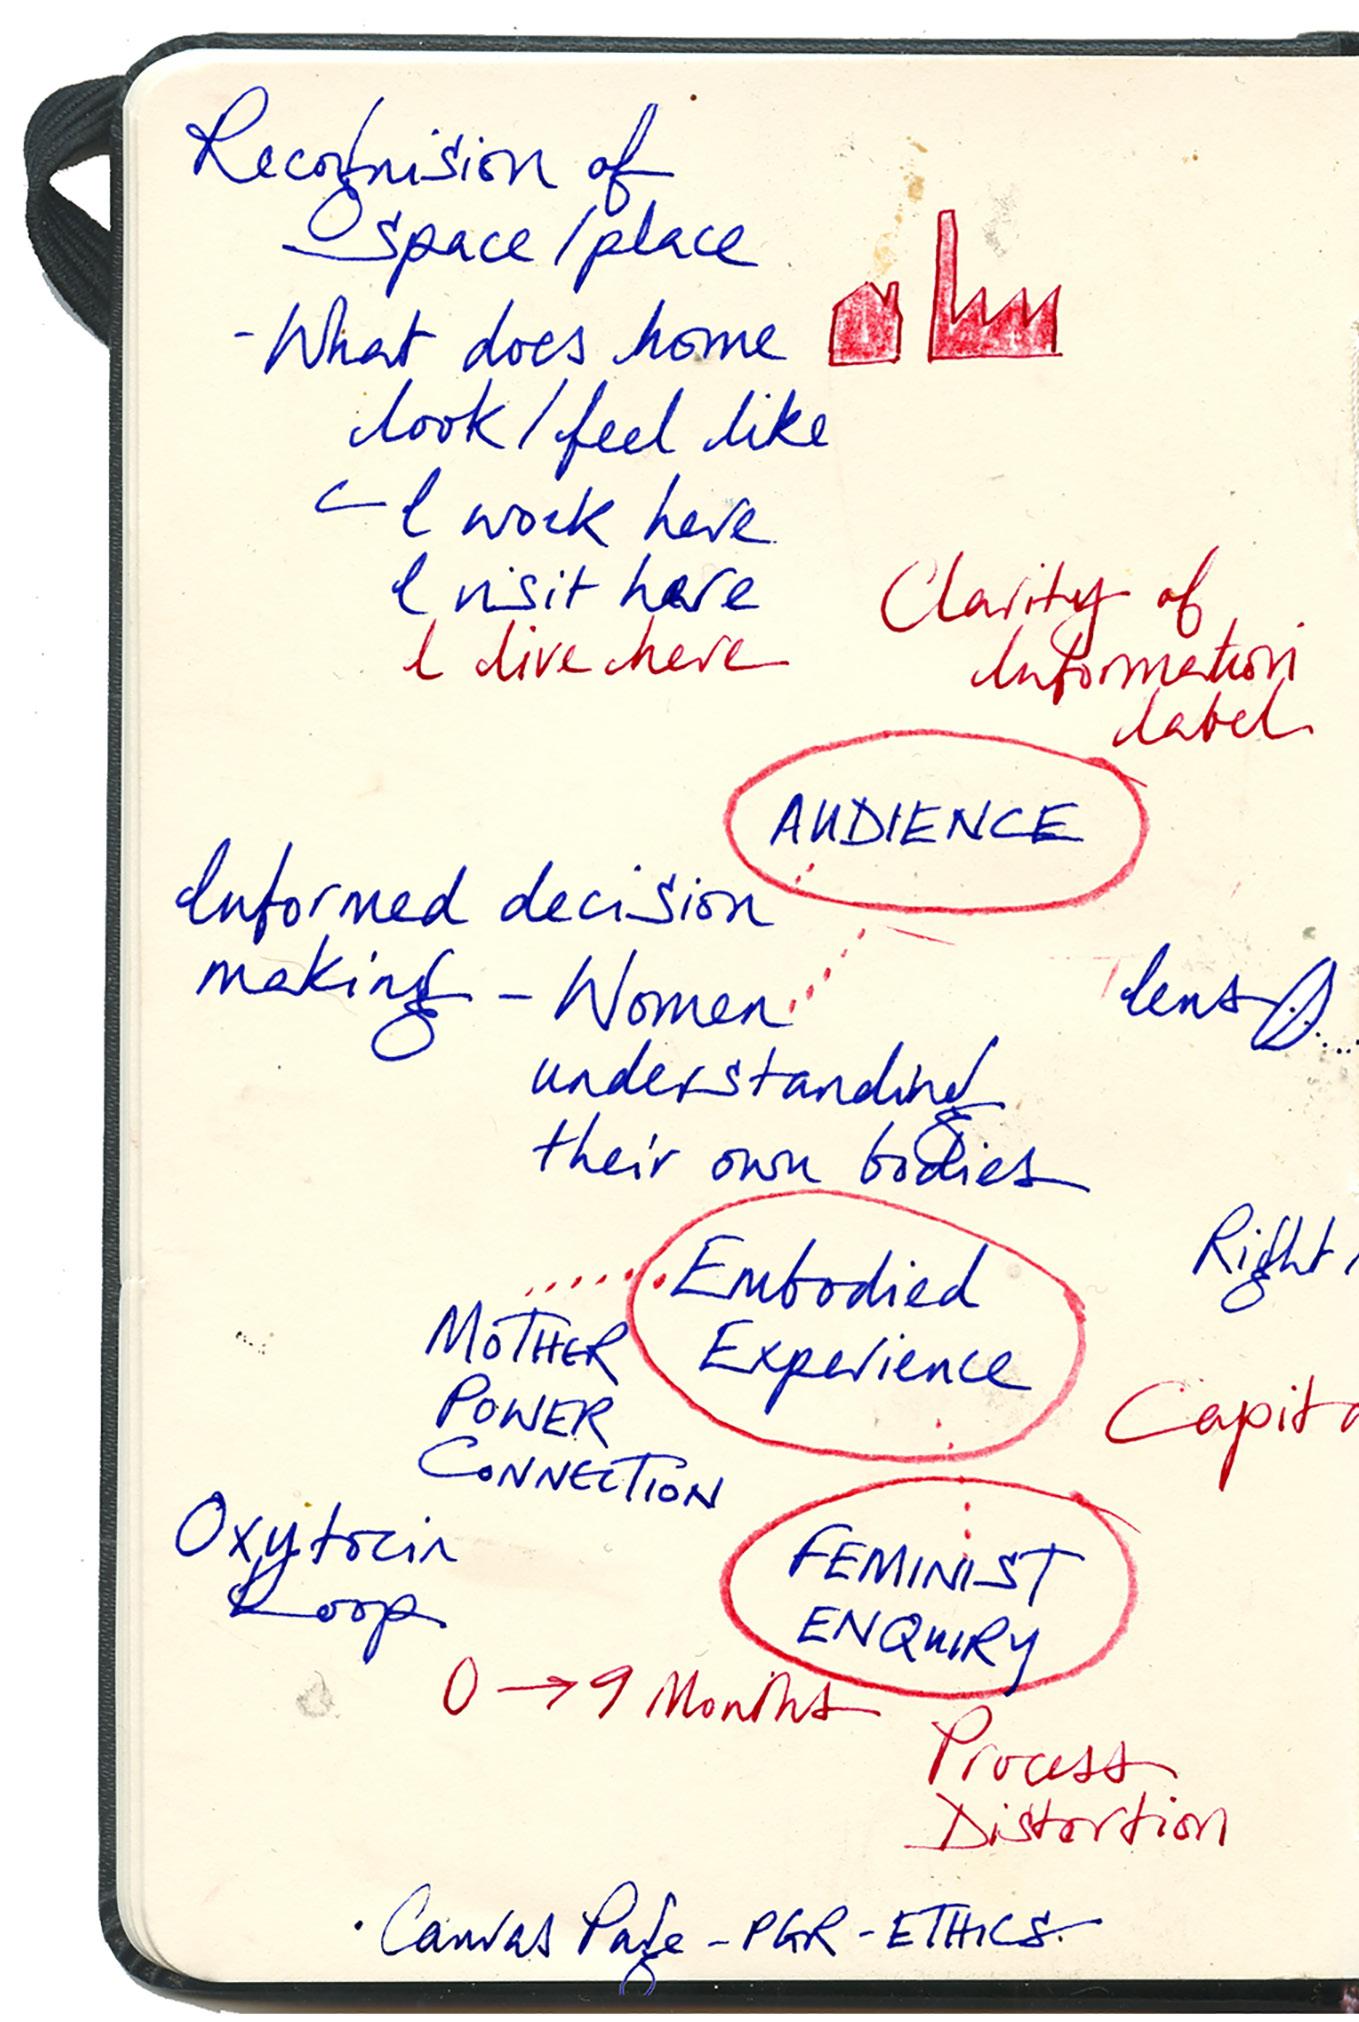 Recognision of
space/place
- What does home
look/feel like
I work here
I visit here
I live here
Clarity of
Information
label
AUDIENCE
Informed decision
making - Women
understanding
their own bodies
lens
Embodied
Experience
Right
MOTHER
POWER
CONNECTION
Capita
Oxytocin
Loop
FEMINIST
ENQUIRY
0 → 9 Months
Process
Distortion
· Canvas Page - PGR - ETHICS.